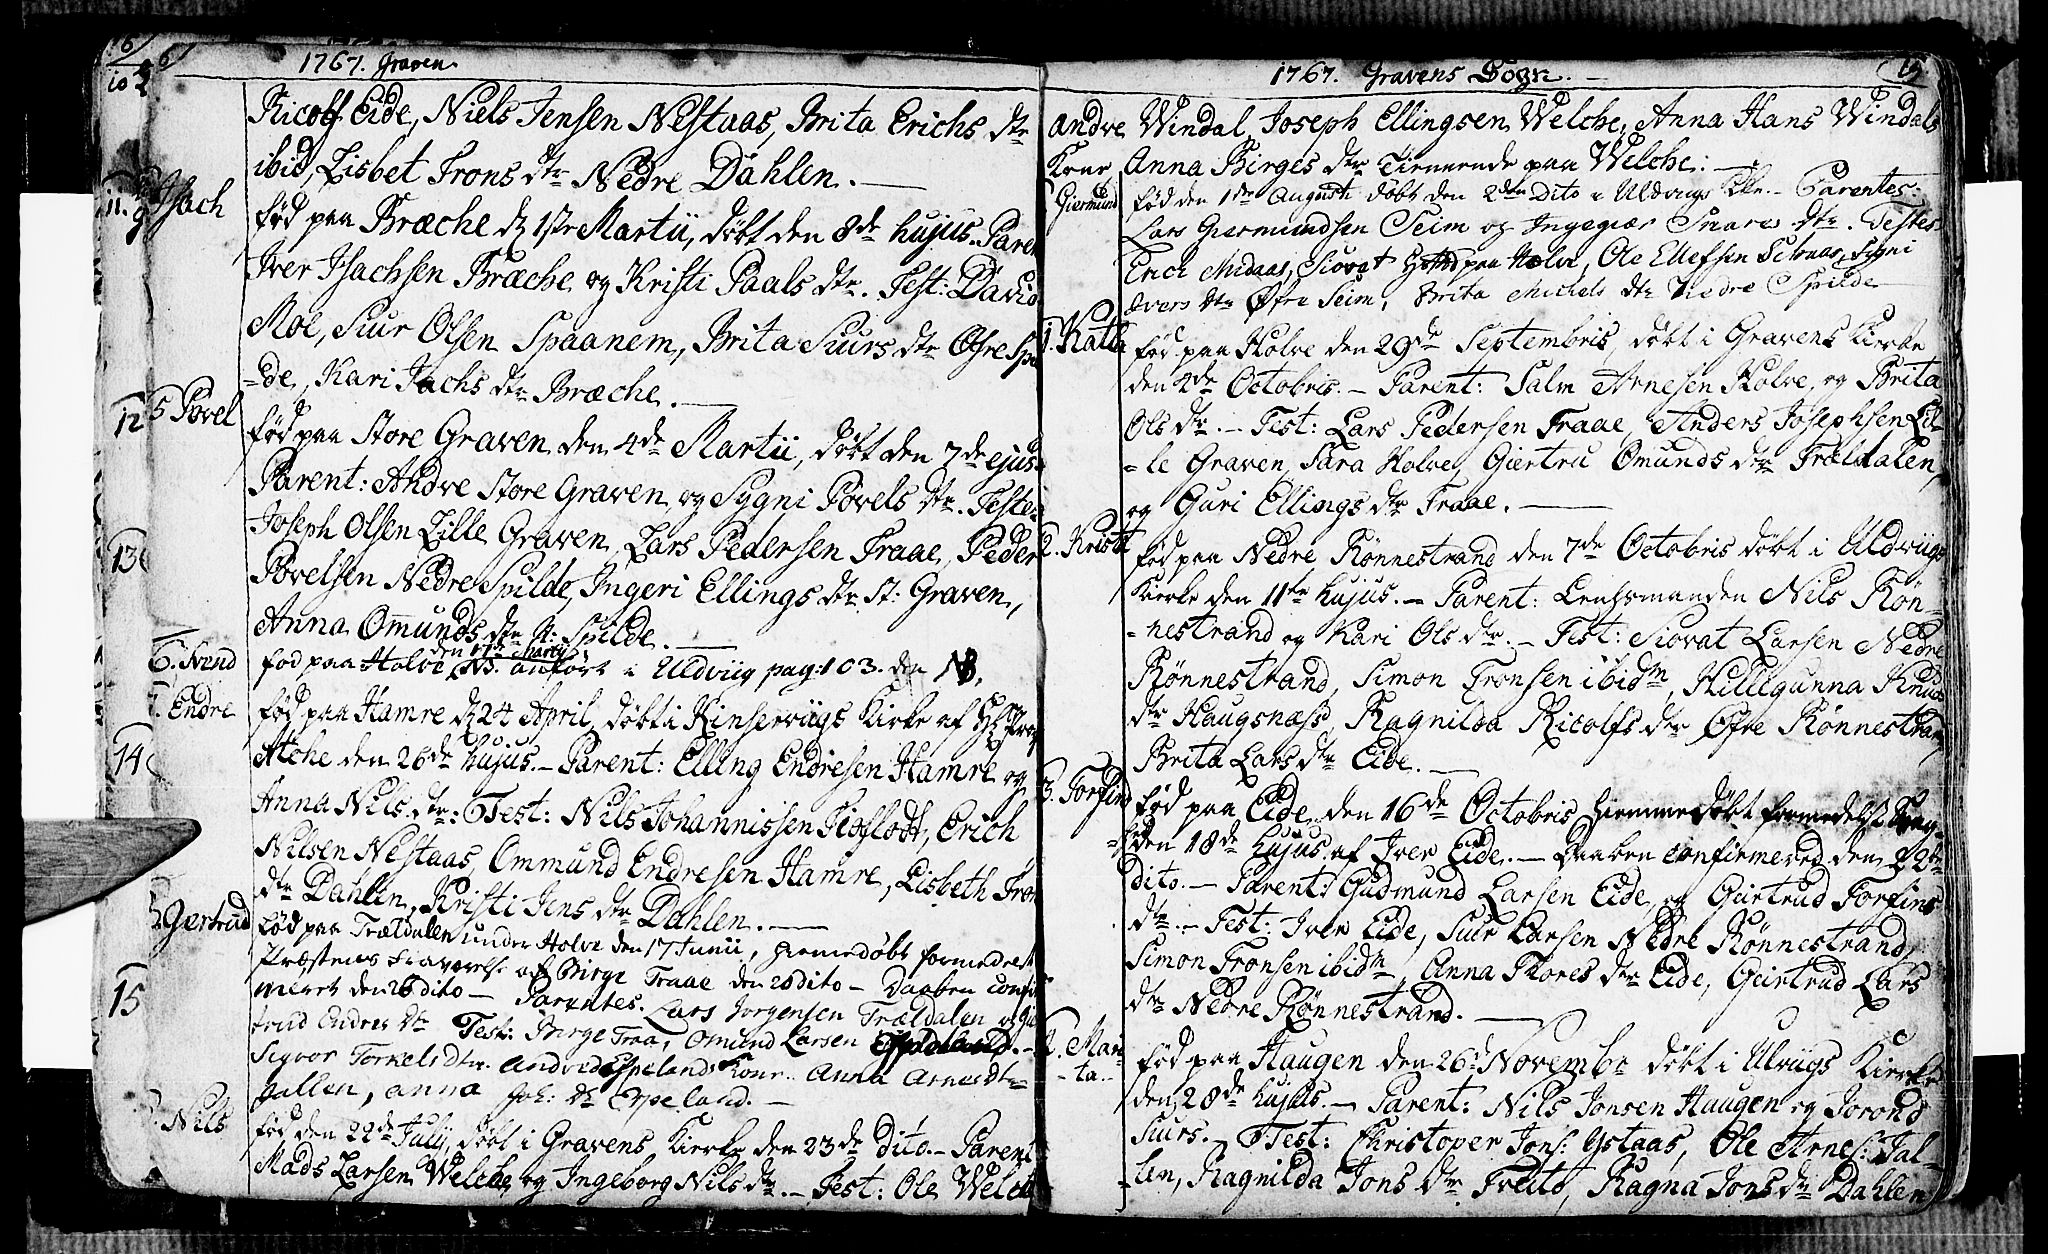 1767. Graven.
Ricolf Eide, Niels Jensen Nestaas, Brita Erichs dtr
ibid, Lisbet Trons dtr Nedre Dahlen.
Isach
fød paa Bræche d 1ste Martii, døbt den 8de hujus. Paren
Iver Isachsen Bræche og Kristi Paals dtr. Test: David
Moe, Siur Olsen Spaanem, Brita Siurs dtr Øfre Spa
-de, Kari Isachs dtr Bræche.
12 5 Povel
fød paa Store Graven den 4de Martii, døbt den 7de ejus
Parent: Andve Store Graven og Sygni Povels dtr. Teste
Joseph Olsen Lille Graven, Lars Pedersen Traae, Peder
13
Povelsen Nedre Spilde, Ingeri Ellings dtr St: Graven,
Anna Omunds dtr N: Spilde.
6. Svend
fød paa Holve den 17de Martii NB. anført i Uldviig pag: 103. den NB.
7. Endre
fød paa Hamre d 24 April, døbt i Kinserviigs Kirke af Hr
14
Atche den 26de hujus. - Parent: Elling Endresen Hamre og
Anna Nils dtr: Test: Nils Johannissen Tioflodt, Erich
Nilsen Nestaas, Ommund Endresen Hamre, Lisbeth Tron
dtr Dahlen, Kristi Jens dtr Dahlen.
Gertrud
fød paa Trældalen under Holve den 17 Junii, hiemedøbt formedelst
Præstens Fraværelse af Birge Traae den 20 dito - Daaben confir
15
meret den 26 dito - Parentes. Lars Jorgensen Trældalen og Gu
trud Endres dtr Test: Birge Traa, Omund Larsen Espeland. -
Sigvor Torkels dtr. Andved Espelands Kone. Anna Arnes dtr
Dallen, Anna Joh: dtr Espeland. -
Nils
fød den 22de Julÿ, døbt i Gravens Kierke den 23de Dito. - Parent
Mads Larsen Welche og Ingeborg Nils dtr. - Test: Ole Welch
1767. Gravens Sogn. -
15
Andre Windal, Joseph Ellingsen Welche, Anna Hans Windals
Kone Anna Birges dtr Tienende paa Welche.
Giermund
fød den 1de Augusti døbt den 2den Dito i Uldviigs Kke. - Parentes
Lars Giermundsen Seim og Ingegier Snares dtr. Testes
Erich Midaas, Siovat paa Holve, Ole Ellefsen Scheaar, Signi
Avers dtr Øfre Seim, Brita Michels dtr Nedre Spilde
1. Katla
fød paa Holve den 29de Septembris, døbt i Gravens Kierke
den 4de Octobris. - Parent: Salm Arnesen Holve, og Brita
Ols dtr. - Test: Lars Pedersen Traae, Anders Josephsen Lil
-le Graven, Sara Holve, Giertru Omunds dtr Trældalen,
og Guri Ellings dtr Traae.
2. Kristi
fød paa Nedre Rønnestrand den 7de Octobris døbt i Uldviigs
Kierke den 11te hujus. - Parent: Lensmanden Nils Røn-
-nestrand og Kari Ols dtr. - Test: Siovat Larsen Nedre
Rønnestrand, Simon Tronsen ibidm, Hillegunna Knud
dtr Haugsnæss, Ragnilda Ricolfs dtr Øfre Rønnestrand,
Brita Lars dtr Eide.
3. Torfind
fød paa Eide den 16de Octobris hiemmedøbt formedelst Svag-
-hed den 18de hujus af Iver Eide. - Daaben confirmered den 22de
dito. - Parent: Gudmund Larsen Eide, og Giertrud Torfins
dtr. - Test: Iver Eide, Siur Larsen Nedre Rønnestrand,
Simon Tronsen ibidm, Anna Thores dtr Eide, Geirtrud Lars
dtr Nedre Rønnestrand.
4. Mar-
-ta.
fød paa Haugen den 26de Novembr døbt i Ulviigs Kierke
den 28de hujus. - Parent: Nils Jonsen Haugen og Jorond
Siurs. - Test: Christoper Jons: Ystaas, Ole Arnes: Dal-
-len, Ragnilda Jons dtr Treito, Ragna Jons dtr Dahlen